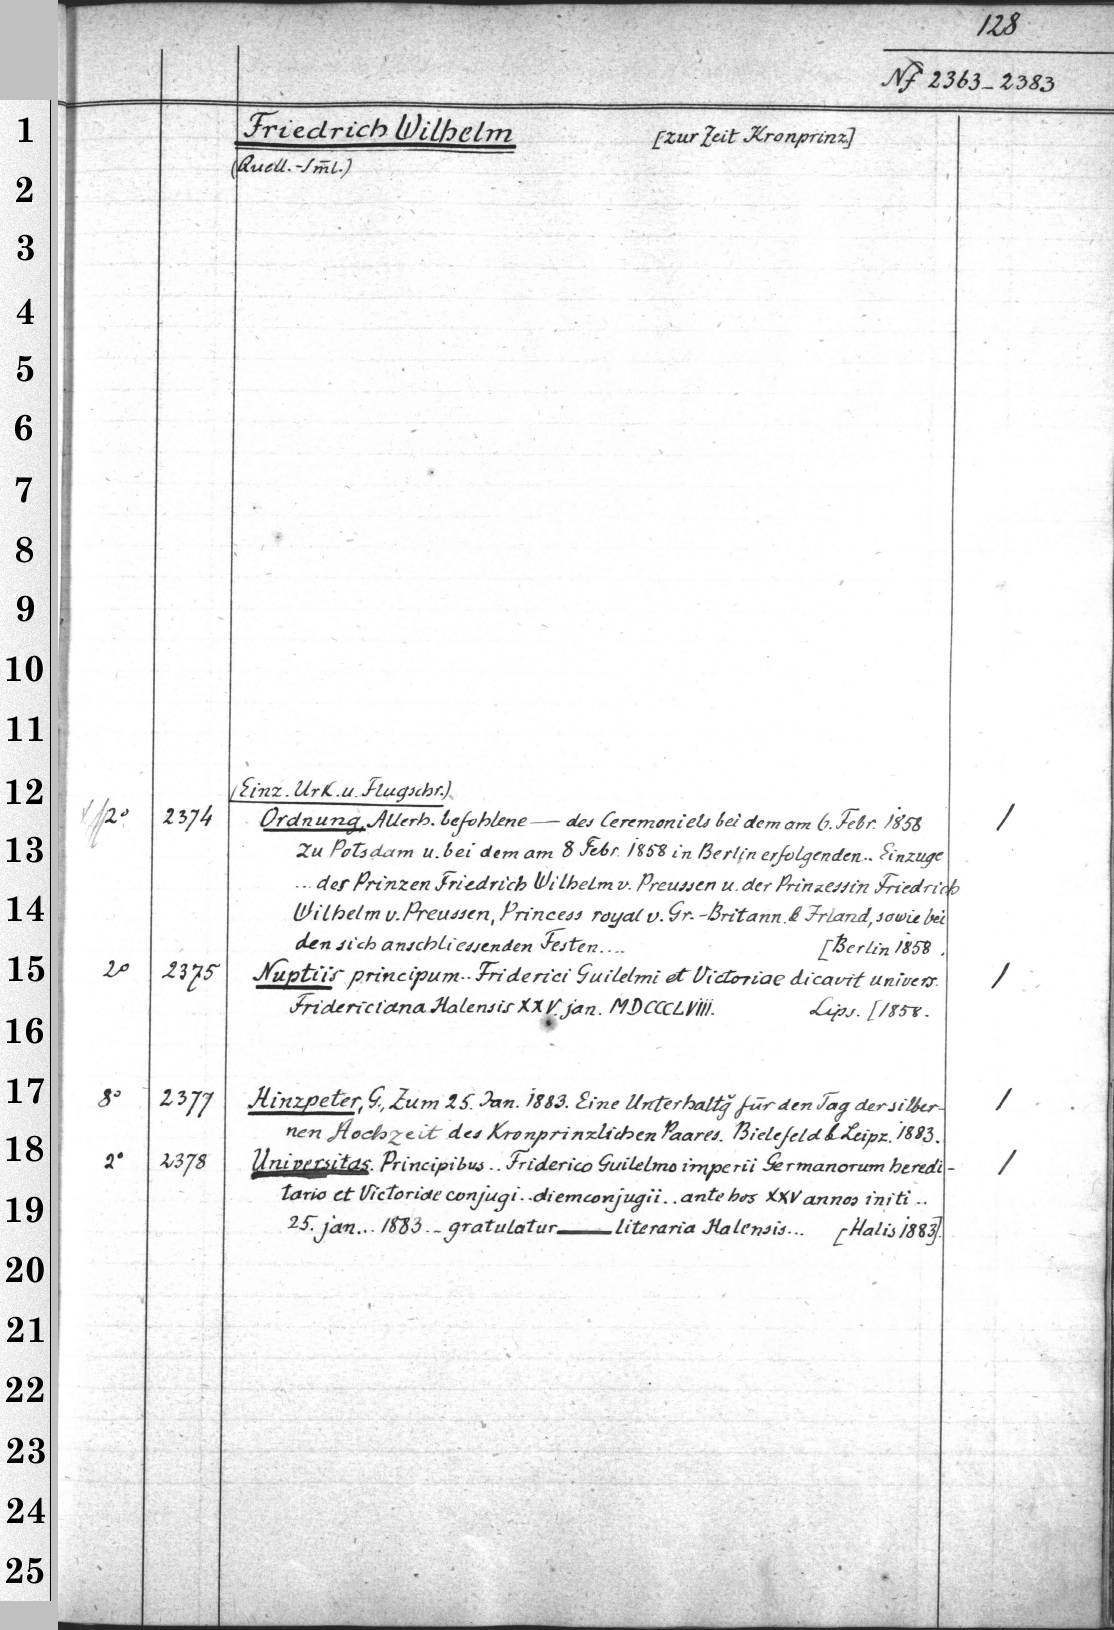 128
Nf 2363-2383
1
Friedrich Wilhelm [zur Zeit Kronprinz]
(Quell.-Sm̅l.)
2
3
4
5
6
7
8
9
10
11
12
(Einz. Urk. u. Flugschr.)
2° 2374 Ordnung, Allerh. befohlene — des Ceremoniels bei dem am 6. Febr. 1858 /
13
zu Potsdam u. bei dem am 8 Febr. 1858 in Berlin erfolgenden.. Einzuge
... des Prinzen Friedrich Wilhelm v. Preussen u. der Prinzessin Friedrich
14
Wilhelm v. Preussen, Princess royal v. Gr.-Britann. & Irland, sowie bei
den sich anschliessenden Festen.... [Berlin 1858.
15
2° 2375 Nuptiis principum.. Friderici Guilelmi et Victoriae dicavit univers. /
Fridericiana Halensis XXV. jan. MDCCCLVIII. Lips. [1858.
16
17
8° 2377 Hinzpeter, G., Zum 25. Jan. 1883. Eine Unterhaltg̃ für den Tag der silber- /
nen Hochzeit des Kronprinzlichen Paares. Bielefeld & Leipz. 1883.
18
2° 2378 Universitas. Principibus.. Friderico Guilelmo imperii Germanorum heredi- /
tario et Victoriae conjugi.. diem conjugii.. ante hos XXV annos initi..
19
25. jan... 1883.. gratulatur — literaria Halensis... [Halis 1883].
20
21
22
23
24
25